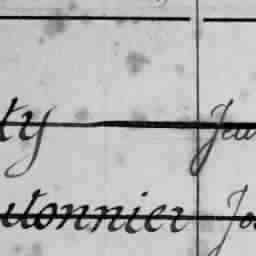 ty Jea
utonnier Jo